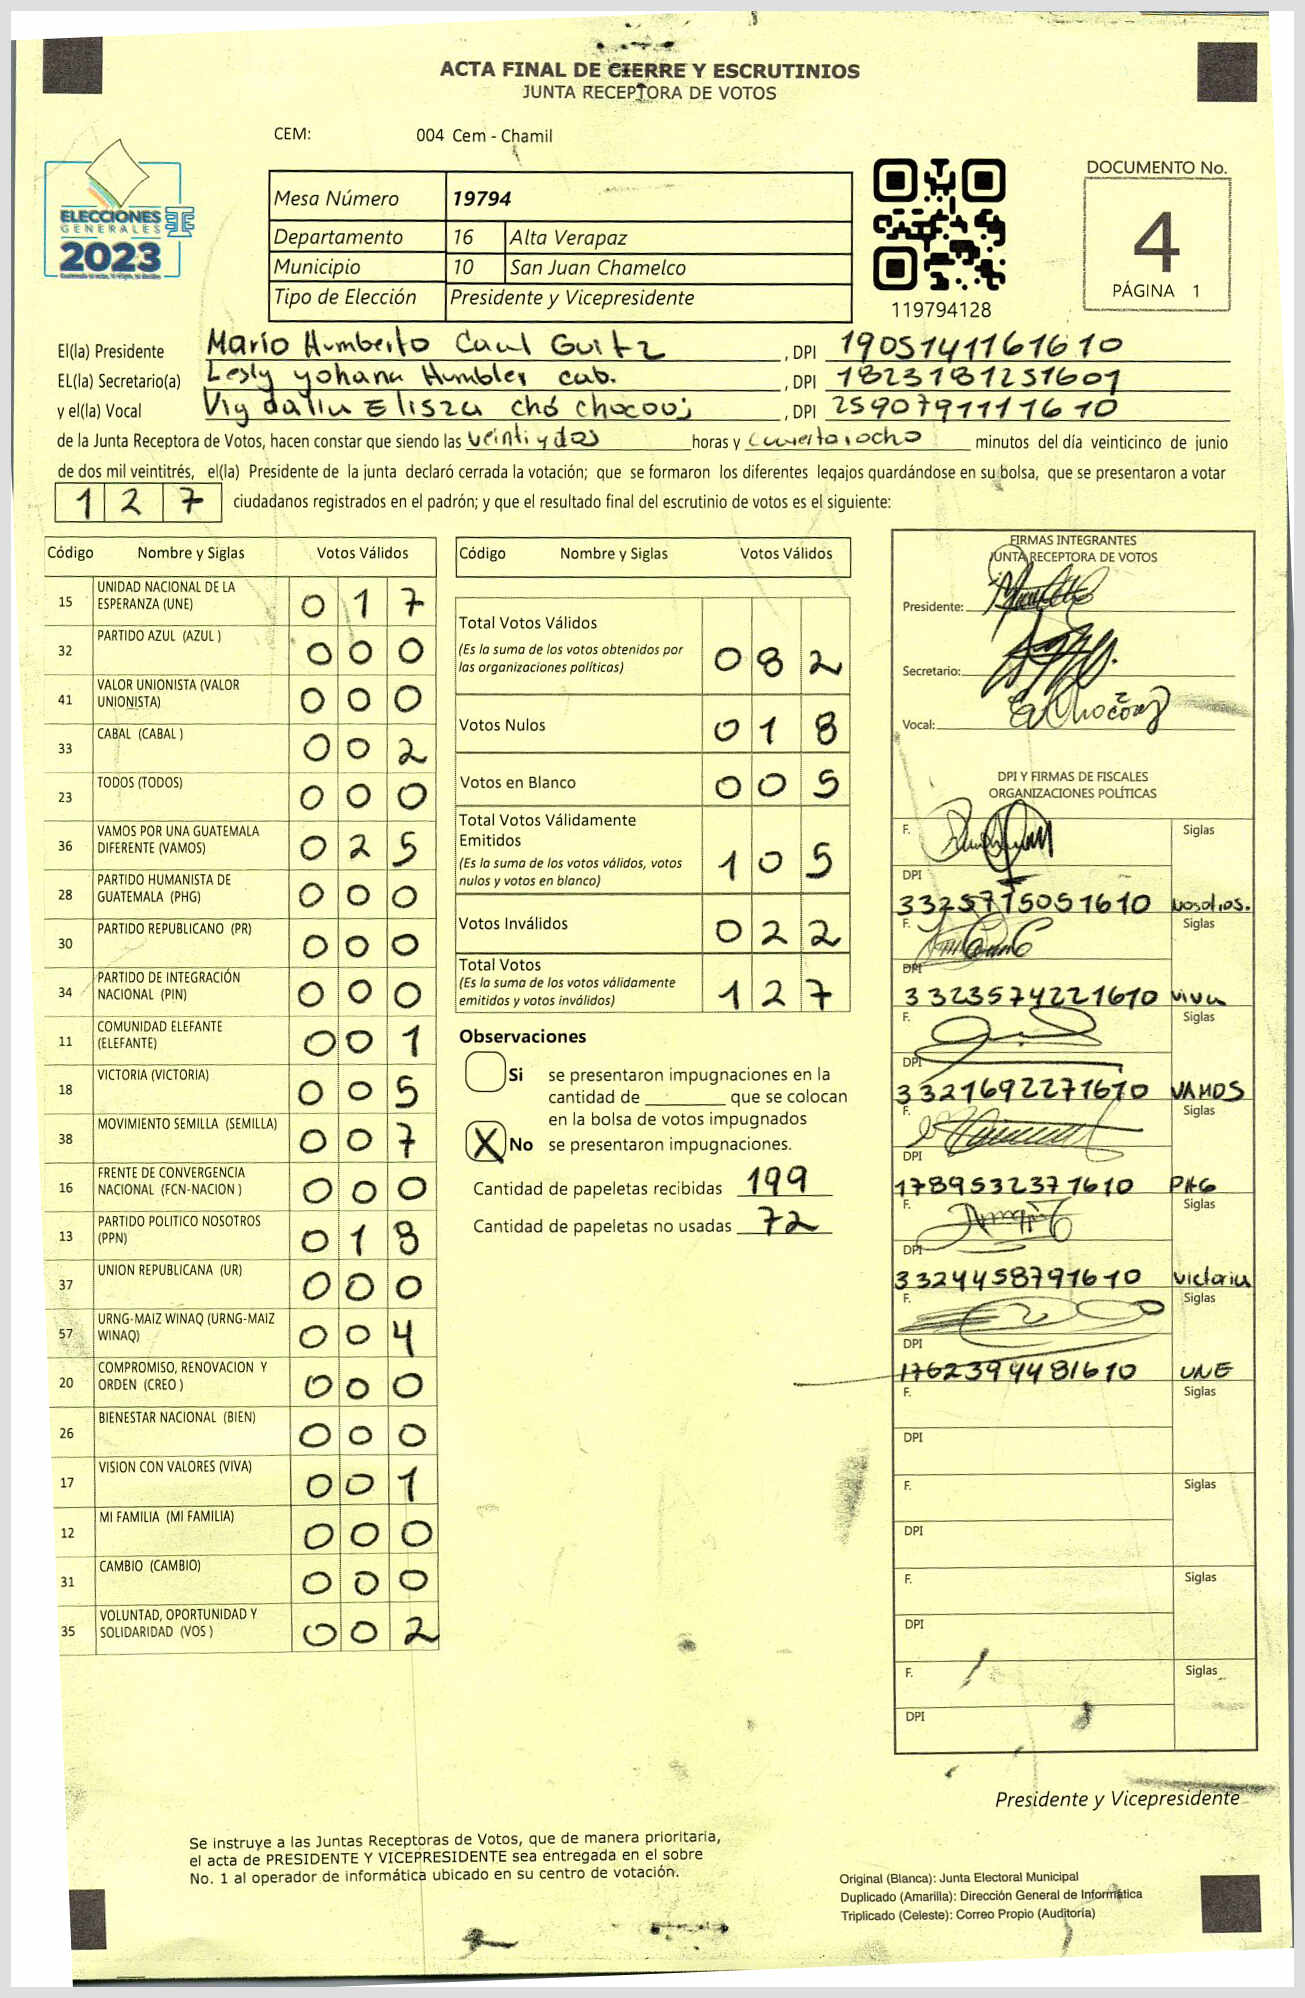 ACTA FINAL DE CIERRE Y ESCRUTINIOS
JUNTA RECEPTORA DE VOTOS
CEM: 004 Cem - Chamil
ELECCIONES
GENERALES
2023
Mesa Número 19794
Departamento 16 Alta Verapaz
Municipio 10 San Juan Chamelco
Tipo de Elección Presidente y Vicepresidente
119794128
DOCUMENTO No.
4
PÁGINA 1
El(la) Presidente Mario Humberto Caal Guitz , DPI 1905141161610
EL(la) Secretario(a) Lesly yohana Humbler cab. , DPI 1823181251601
y el(la) Vocal Elisza chó chocooj , DPI 2590791111610
de la Junta Receptora de Votos, hacen constar que siendo las veintiydos horas y cuarentaiocho minutos del día veinticinco de junio
de dos mil veintitrés, el(la) Presidente de la junta declaró cerrada la votación; que se formaron los diferentes legajos guardándose en su bolsa, que se presentaron a votar
127 ciudadanos registrados en el padrón; y que el resultado final del escrutinio de votos es el siguiente:
Código Nombre y Siglas Votos Válidos
15 UNIDAD NACIONAL DE LA ESPERANZA (UNE) 017
32 PARTIDO AZUL (AZUL ) 000
41 VALOR UNIONISTA (VALOR UNIONISTA) 000
33 CABAL (CABAL ) 002
23 TODOS (TODOS) 000
36 VAMOS POR UNA GUATEMALA DIFERENTE (VAMOS) 025
28 PARTIDO HUMANISTA DE GUATEMALA (PHG) 000
30 PARTIDO REPUBLICANO (PR) 000
34 PARTIDO DE INTEGRACIÓN NACIONAL (PIN) 000
11 COMUNIDAD ELEFANTE (ELEFANTE) 001
18 VICTORIA (VICTORIA) 005
38 MOVIMIENTO SEMILLA (SEMILLA) 007
16 FRENTE DE CONVERGENCIA NACIONAL (FCN-NACION ) 000
13 PARTIDO POLITICO NOSOTROS (PPN) 018
37 UNION REPUBLICANA (UR) 000
57 URNG-MAIZ WINAQ (URNG-MAIZ WINAQ) 004
20 COMPROMISO, RENOVACION Y ORDEN (CREO ) 000
26 BIENESTAR NACIONAL (BIEN) 000
17 VISION CON VALORES (VIVA) 001
12 MI FAMILIA (MI FAMILIA) 000
31 CAMBIO (CAMBIO) 000
35 VOLUNTAD, OPORTUNIDAD Y SOLIDARIDAD (VOS ) 002
Código Nombre y Siglas Votos Válidos
Total Votos Válidos 082
(Es la suma de los votos obtenidos por
las organizaciones políticas)
Votos Nulos 018
Votos en Blanco 005
Total Votos Válidamente
Emitidos 105
(Es la suma de los votos válidos, votos
nulos y votos en blanco)
Votos Inválidos 022
Total Votos 127
(Es la suma de los votos válidamente
emitidos y votos inválidos)
Observaciones
Si se presentaron impugnaciones en la
cantidad de ________ que se colocan
en la bolsa de votos impugnados
X No se presentaron impugnaciones.
Cantidad de papeletas recibidas 199
Cantidad de papeletas no usadas 72
FIRMAS INTEGRANTES
JUNTA RECEPTORA DE VOTOS
Presidente:
Secretario:
Vocal:
DPI Y FIRMAS DE FISCALES
ORGANIZACIONES POLÍTICAS
F. Siglas
DPI
3325715051610 Nosotros.
F. Siglas
DPI
3323574221610 viva
F. Siglas
DPI
3321692271610 VAMOS
F. Siglas
DPI
1789532371610 PHG
F. Siglas
DPI
3324458791610 victoria
F. Siglas
DPI
1762394481610 UNE
F. Siglas
DPI
F. Siglas
DPI
F. Siglas
DPI
F. Siglas
DPI
Presidente y Vicepresidente
Se instruye a las Juntas Receptoras de Votos, que de manera prioritaria,
el acta de PRESIDENTE Y VICEPRESIDENTE sea entregada en el sobre
No. 1 al operador de informática ubicado en su centro de votación.
Original (Blanca): Junta Electoral Municipal
Duplicado (Amarilla): Dirección General de Informática
Triplicado (Celeste): Correo Propio (Auditoría)